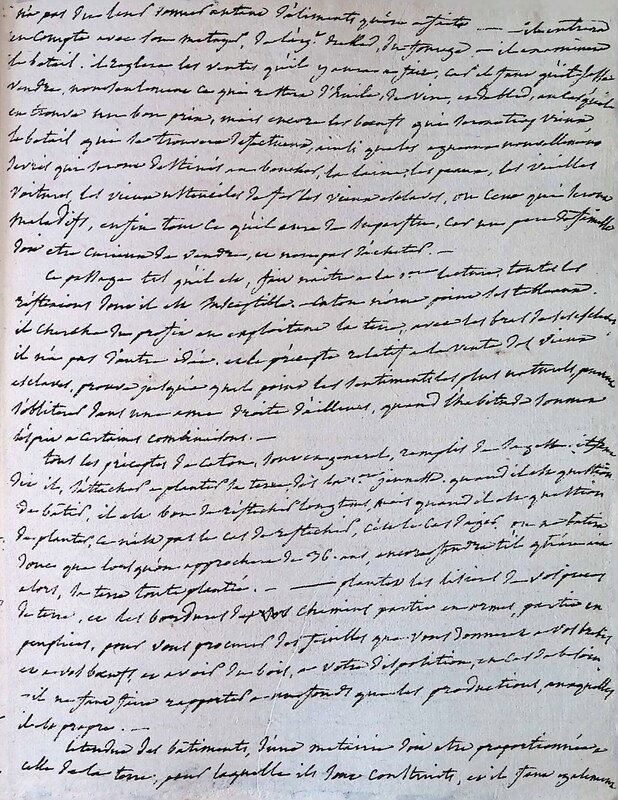 n'a pas de leur donner autant d'aliments qu'on a faits — il entrera
en compte avec son métayer, de l'arg.t du bled, du fourage. — il examinera
le betail. il reglera les ventes qu'il y aura a faire, car il faut qu'il fasse
vendre, non seulement ce qui restera d'huile, de vin, et de bled, au cas qu'il
en trouve un bon prix, mais encore les bœufs qui seront trop vieux
le betail qui se trouvera defectueux, ainsi que les agneaux nouvellement
sevrés qui seront destinés au boucher, la laine, les peaux, les vieilles
voitures, les vieux ustenciles de fer les vieux esclaves, ou ceux qui seront
maladifs, enfin tout ce qu'il aura de superflu, car un pere de famille
doit etre curieux de vendre, et non pas d'acheter. —
Ce passage tel qu'il est, fait naitre a la 1ere lecture, toutes les
réflexions dont il est susceptible. — Caton n'orne point ses tableaux.
il cherche du profit en exploitant la terre, avec les bras de ses esclaves,
il n'a pas d'autre idée. et le précepte relatif a la vente des vieux
esclaves, prouve jusqu'a quel point les sentiments les plus naturels, peuvent
s'oblitérer dans une ame droite d'ailleurs, quand l'habitude soumet
l'esprit a certaines combinaisons. —
tous les préceptes de Caton, sont en general, remplis de sagesse.
dit il, s'attacher a planter sa terre dès la 1ere jeunesse. quand il est question
de batir, il est bon de réfléchir longtems, mais quand il est question
de planter, ce n'est pas le cas de réfléchir, c'est le cas d'agir, on ne batira
donc que lorsqu'on approchera de 36 ans, encore faudra t'il qu'on ait
alors, sa terre toute plantée. — — plantez les lisieres de vos pieces
de terre, et les bordures de vos chemins partie en ormes, partie en
peupliers, pour vous procurer des feuilles que vous donnerez a vos brebis
et a vos bœufs, et avoir du bois, a votre disposition, en cas de besoin
— il ne faut faire rapporter a un fonds que les productions, auxquelles
il est propre. —
L'etendue des bâtiments, d'une metairie doit etre proportionnée a
celle de la terre, pour laquelle ils sont construits, et il faut egalement